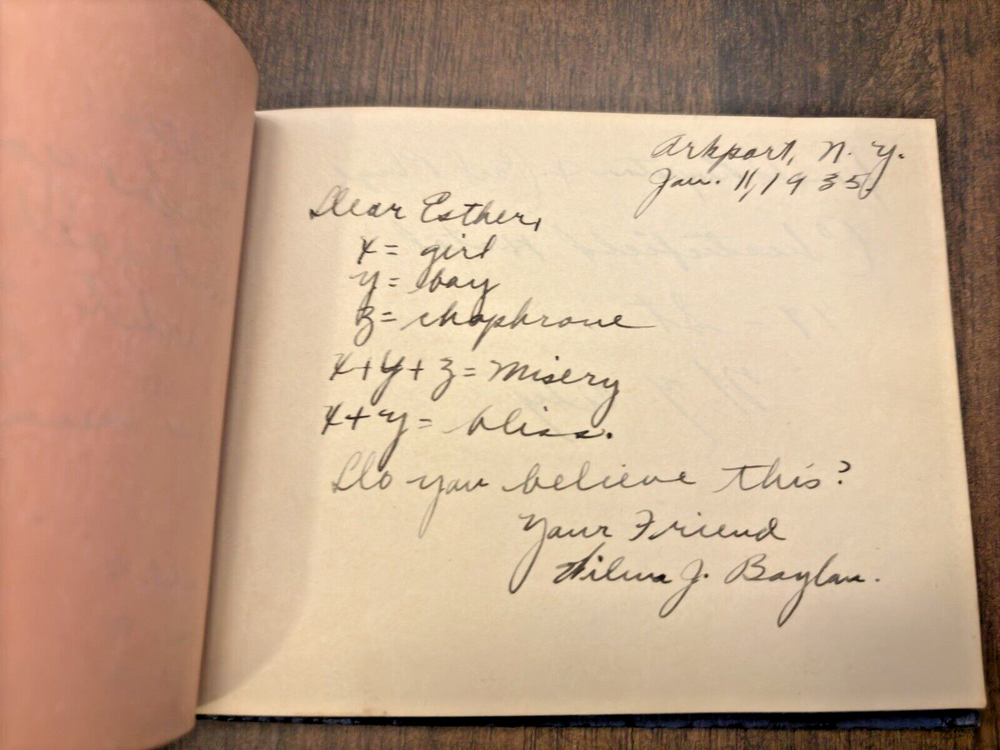 Arkport, N. Y.
Jan. 11, 1935
Dear Esther,
x = girl
y = boy
z = chaphrone
x + y + z = Misery
x + y = bliss.
Do you believe this?
Your Friend
Wilma J. Boylan.